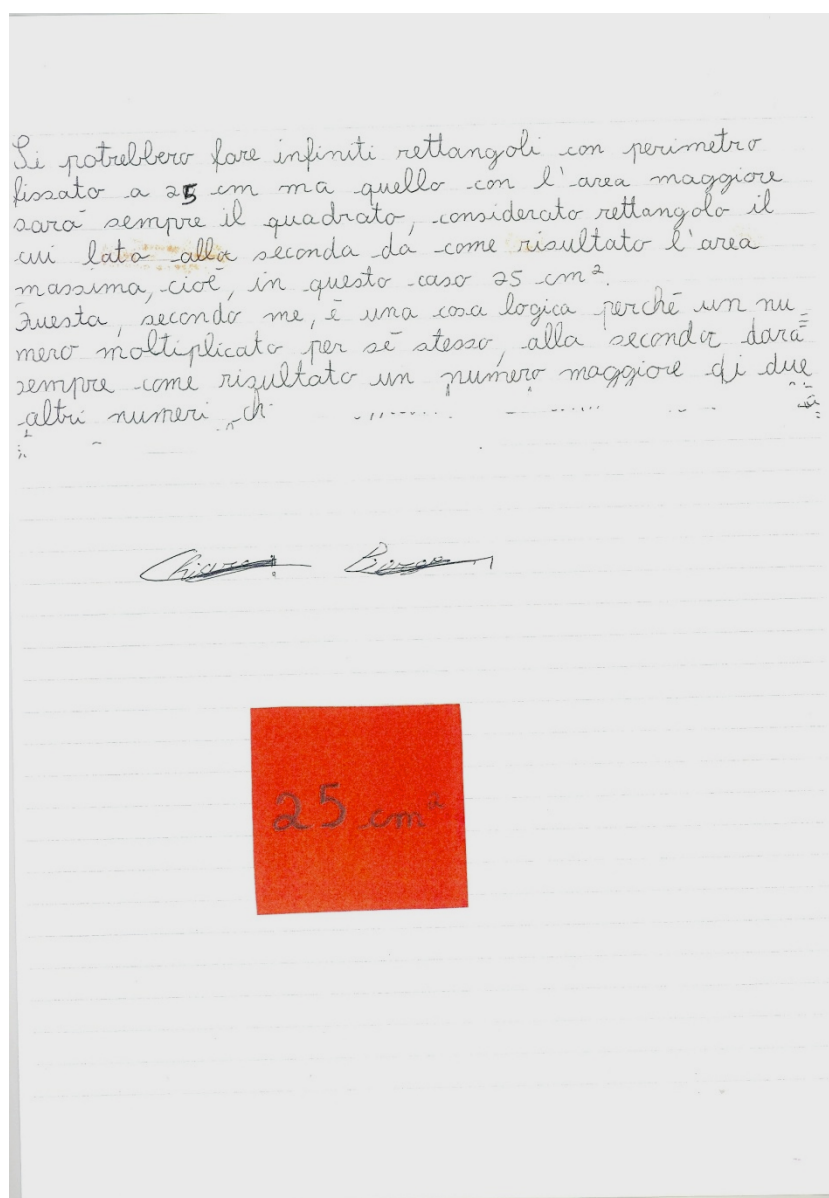 Si potrebbero fare infiniti rettangoli con perimetro
fissato a 25 cm ma quello con l'area maggiore
sarà sempre il quadrato, considerato rettangolo il
cui lato alla seconda dà come risultato l'area
massima, cioè, in questo caso 25 cm².
Questa, secondo me, è una cosa logica perché un nu=
mero moltiplicato per sé stesso, alla seconda darà
sempre come risultato un numero maggiore di due
altri numeri ch
25 cm²